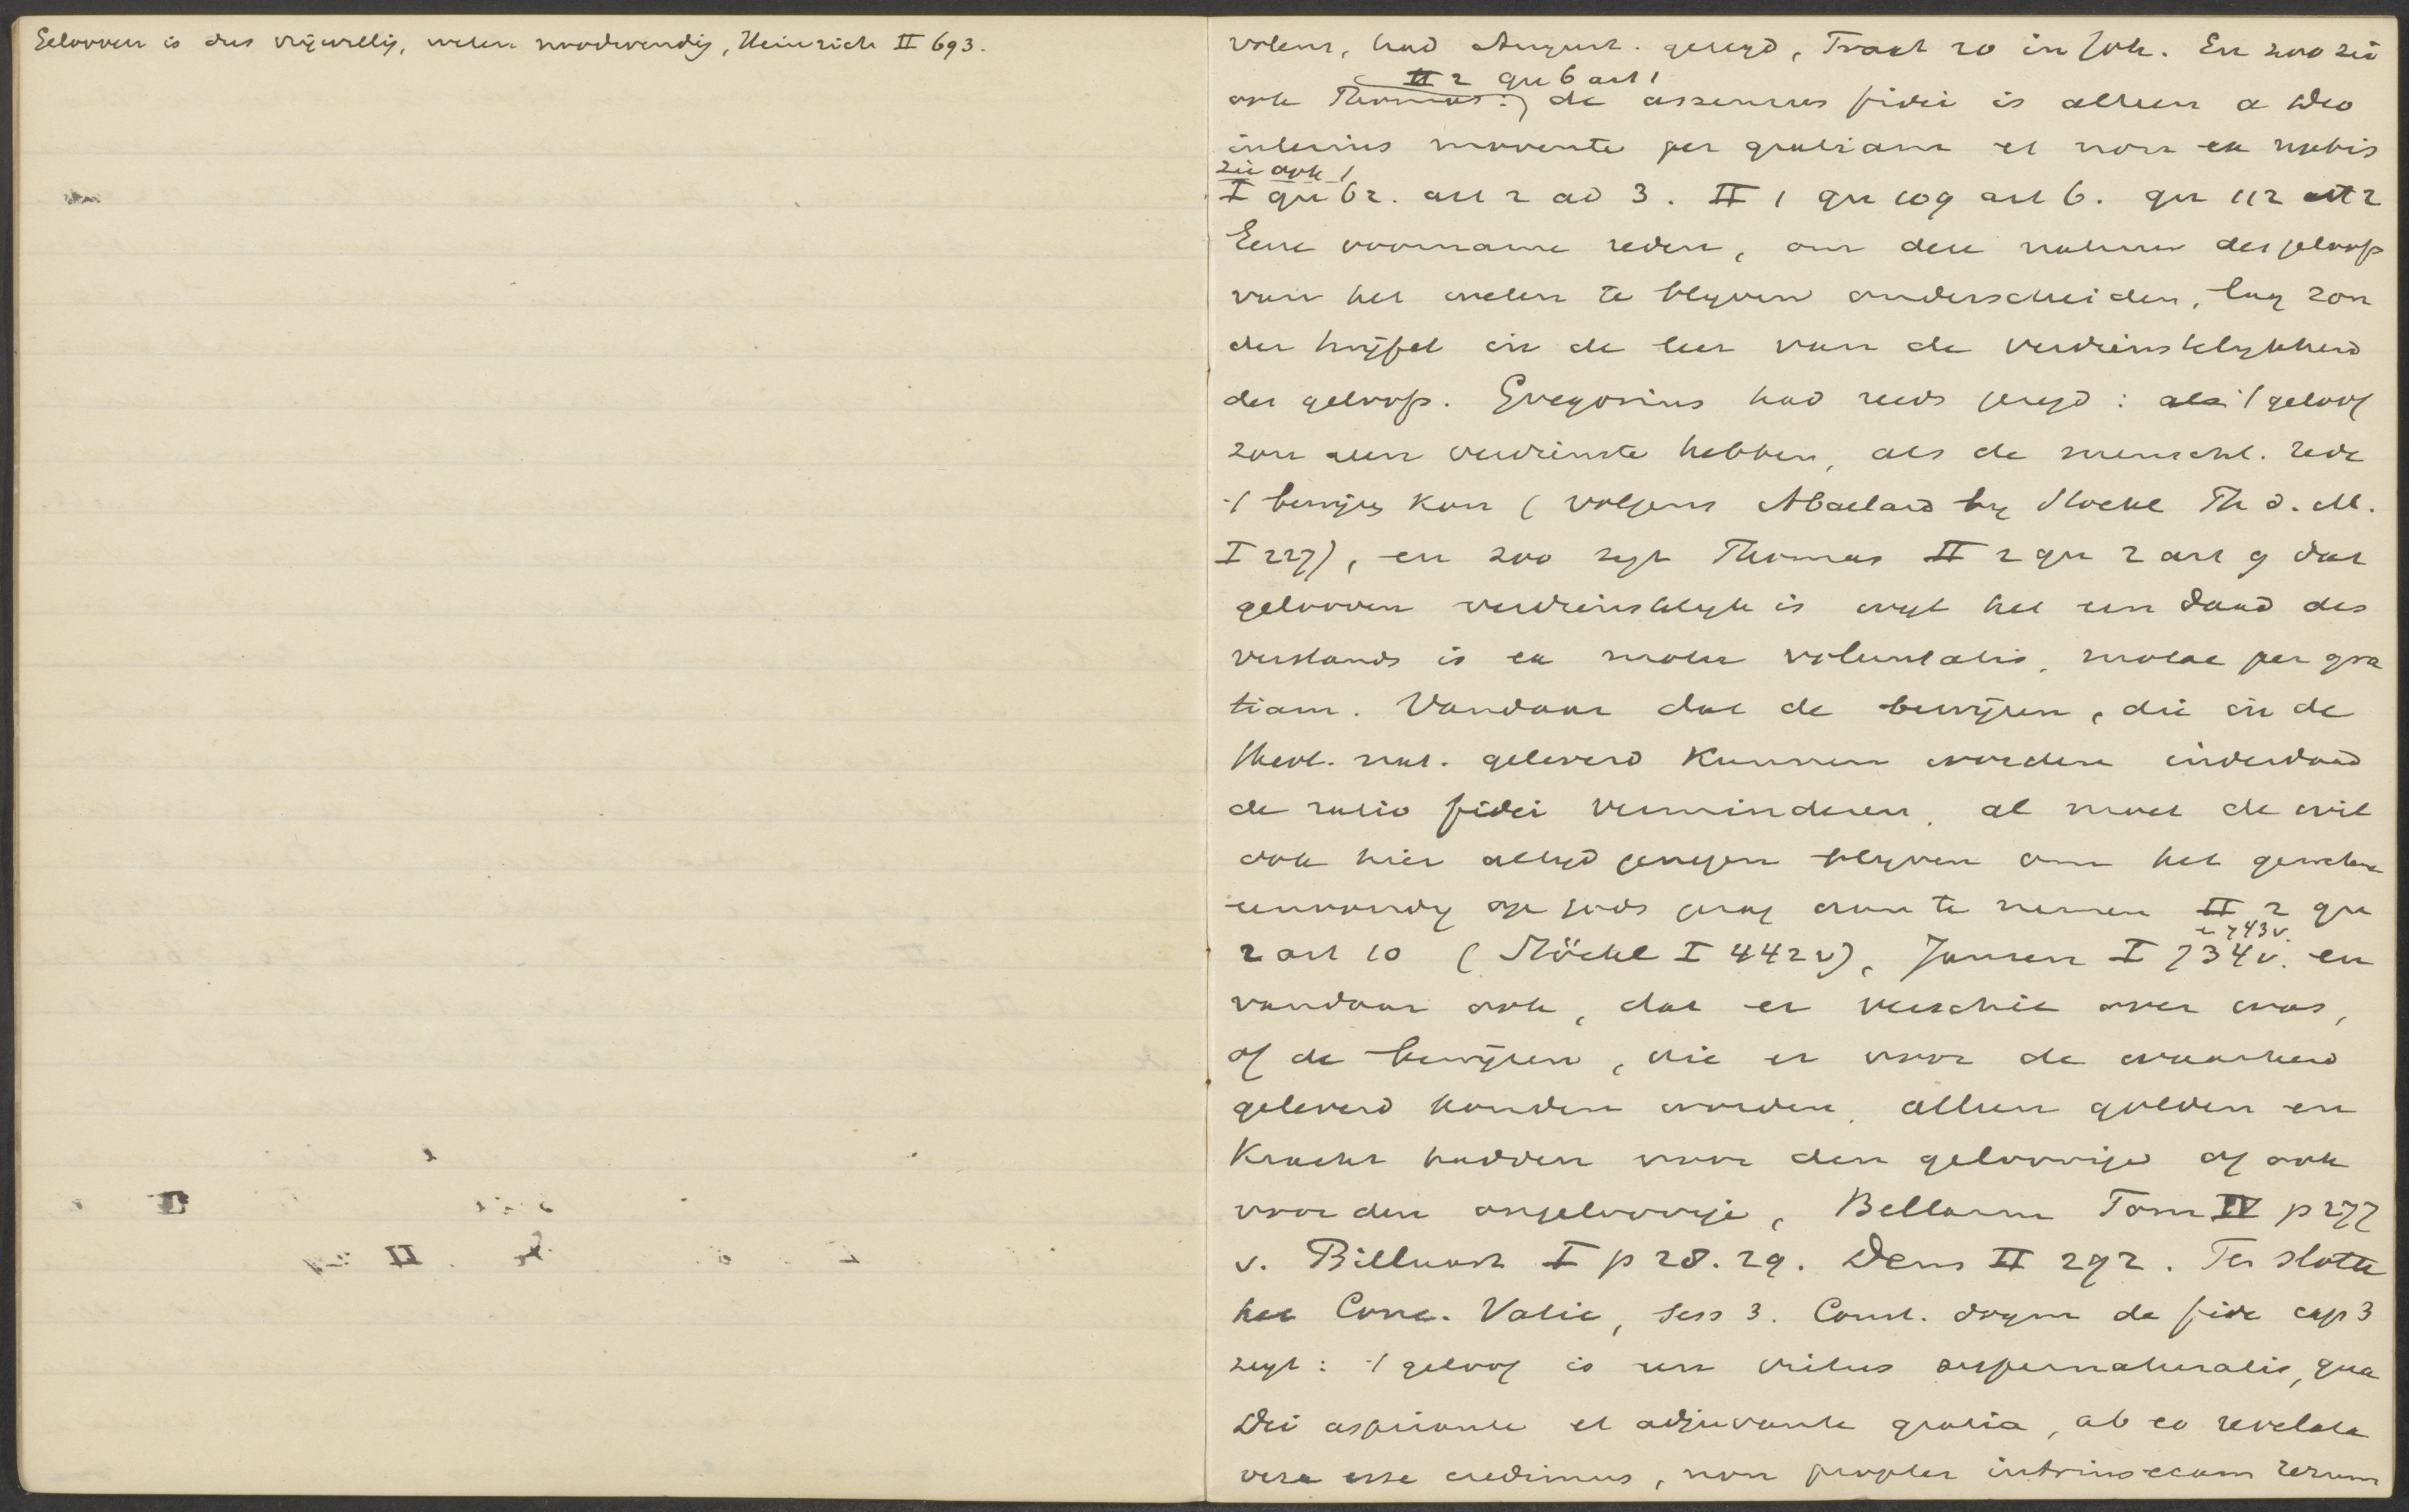 Gelooven is dus vrijwillig, weten noodwendig, Heinrich II 693.
volens, had August. gezegd, Tract 20 in Joh. En zoo zei
II 2 qu 6 art 1
ook Thomas: de assensus fidei is alleen a Deo
interius movente per gratiam et non ex nobis
zie ook
I qu 62. art 2 ad 3. II 1 qu 109 art 6. qu 112 art 2
Eene voorname reden, om den natuur des geloofs
van het weten te blijven onderscheiden, lag zon
der twijfel in de leer van de verdienstelijkheid
des geloofs. Gregorius had reeds gezegd: als 't geloof
zou geen verdienste hebben, als de menschl. rede
't bewijzen kon (volgens Abaelard bij Stoekl Th d. M.
I 227), en zoo zegt Thomas II 2 qu 2 art 9 dat
gelooven verdienstelijk is wijl het een daad des
verstands is ex motu voluntatis, motae per gra
tiam. Vandaar dat de bewijzen, die in de
theol. nat. geleverd kunnen worden inderdaad
de ratio fidei verminderen, al moet de wil
ook hier altijd genegen blijven om het geweten
eenvoudig op Gods gezag aan te nemen II 2 qu
en 743 v.
2 art 10 (Stöckl I 442 v), Jansen I 734 v. en
vandaar ook, dat er verschil over was,
of de bewijzen, die er voor de waarheid
geleverd konden worden, alleen golden en
kracht hadden voor den geloovige of ook
voor den ongeloovige, Bellarm Tom IV p 277
v. Billuart I p 28. 29. Dens II 292. Ten slotte
het Conc. Vatic, sess 3. Const. dogm de fide cap 3
zegt: 't geloof is een virtus supernaturalis, qua
Dei aspirante et adjuvante gratia, ab eo revelata
vera esse credimus, non propter intrinsecam rerum